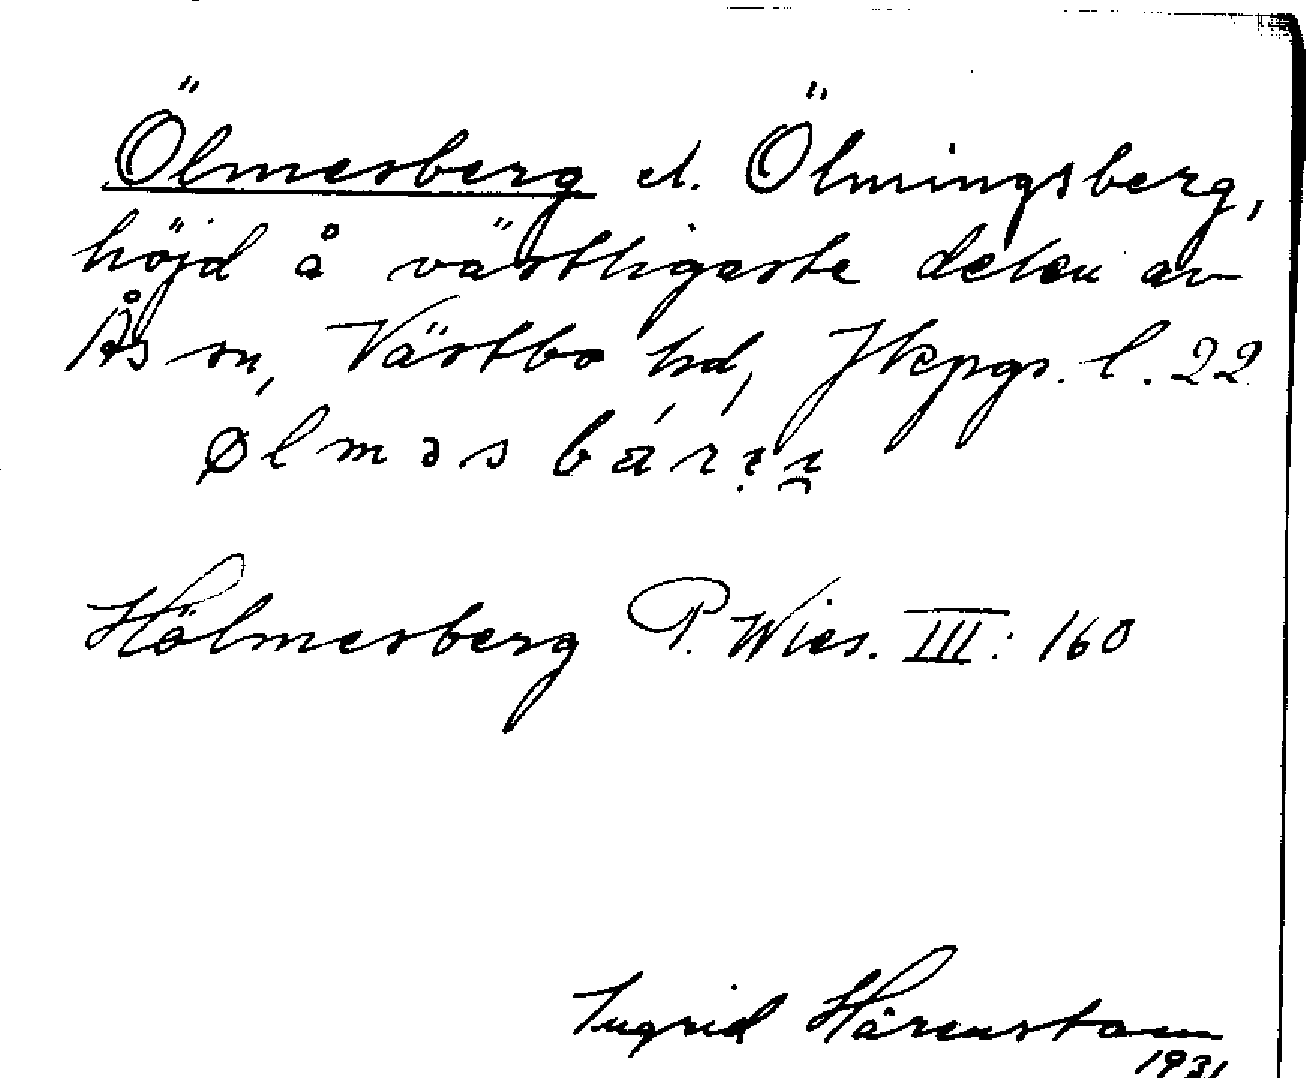 Ölmesberg el. Ölmingsberg,
höjd å västligaste delen av
Ås sn, Västbo hd, Jkpgs. l. 22
ølməs bár
Hölmesberg P. Wies. III: 160
Ingrid Härenstam
1931